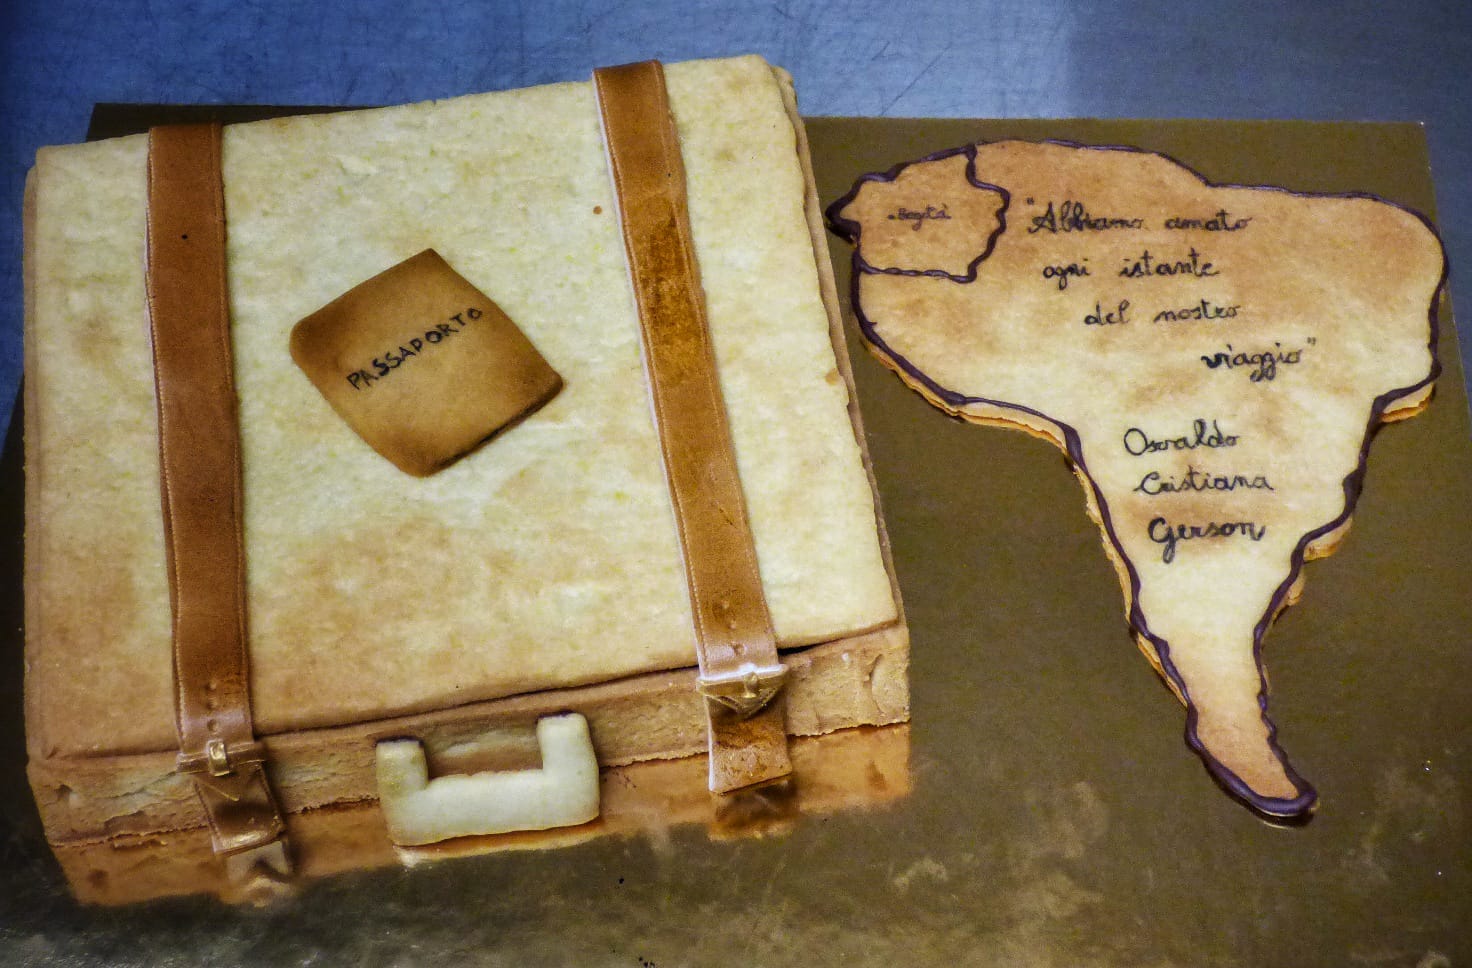 PASSAPORTO
Bogotà
"Abbiamo amato
ogni istante
del nostro
viaggio"
Osvaldo
Cristiana
Gerson